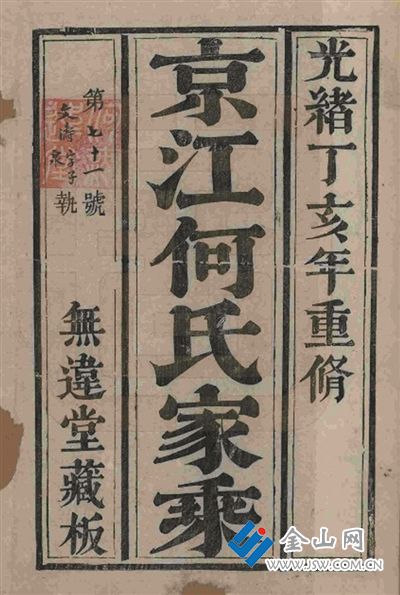 光緒丁亥年重脩
京江何氏家乘
第七十一號
執
無違堂藏板
金山网
WWW.JSW.COM.CN